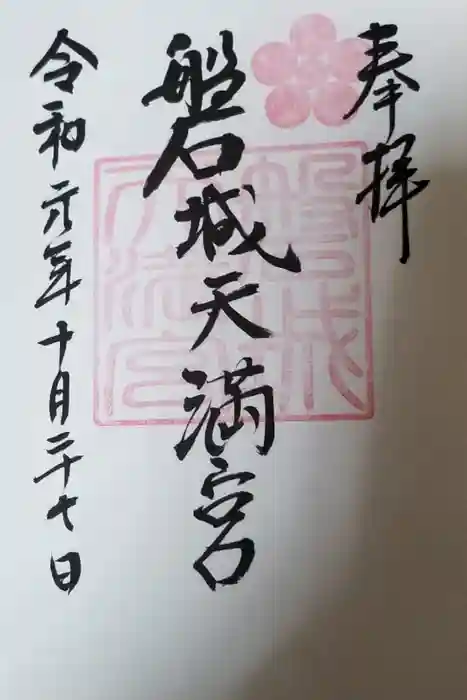 奉拝
磐城天満宮
令和元年十月二十七日
磐城
天満宮